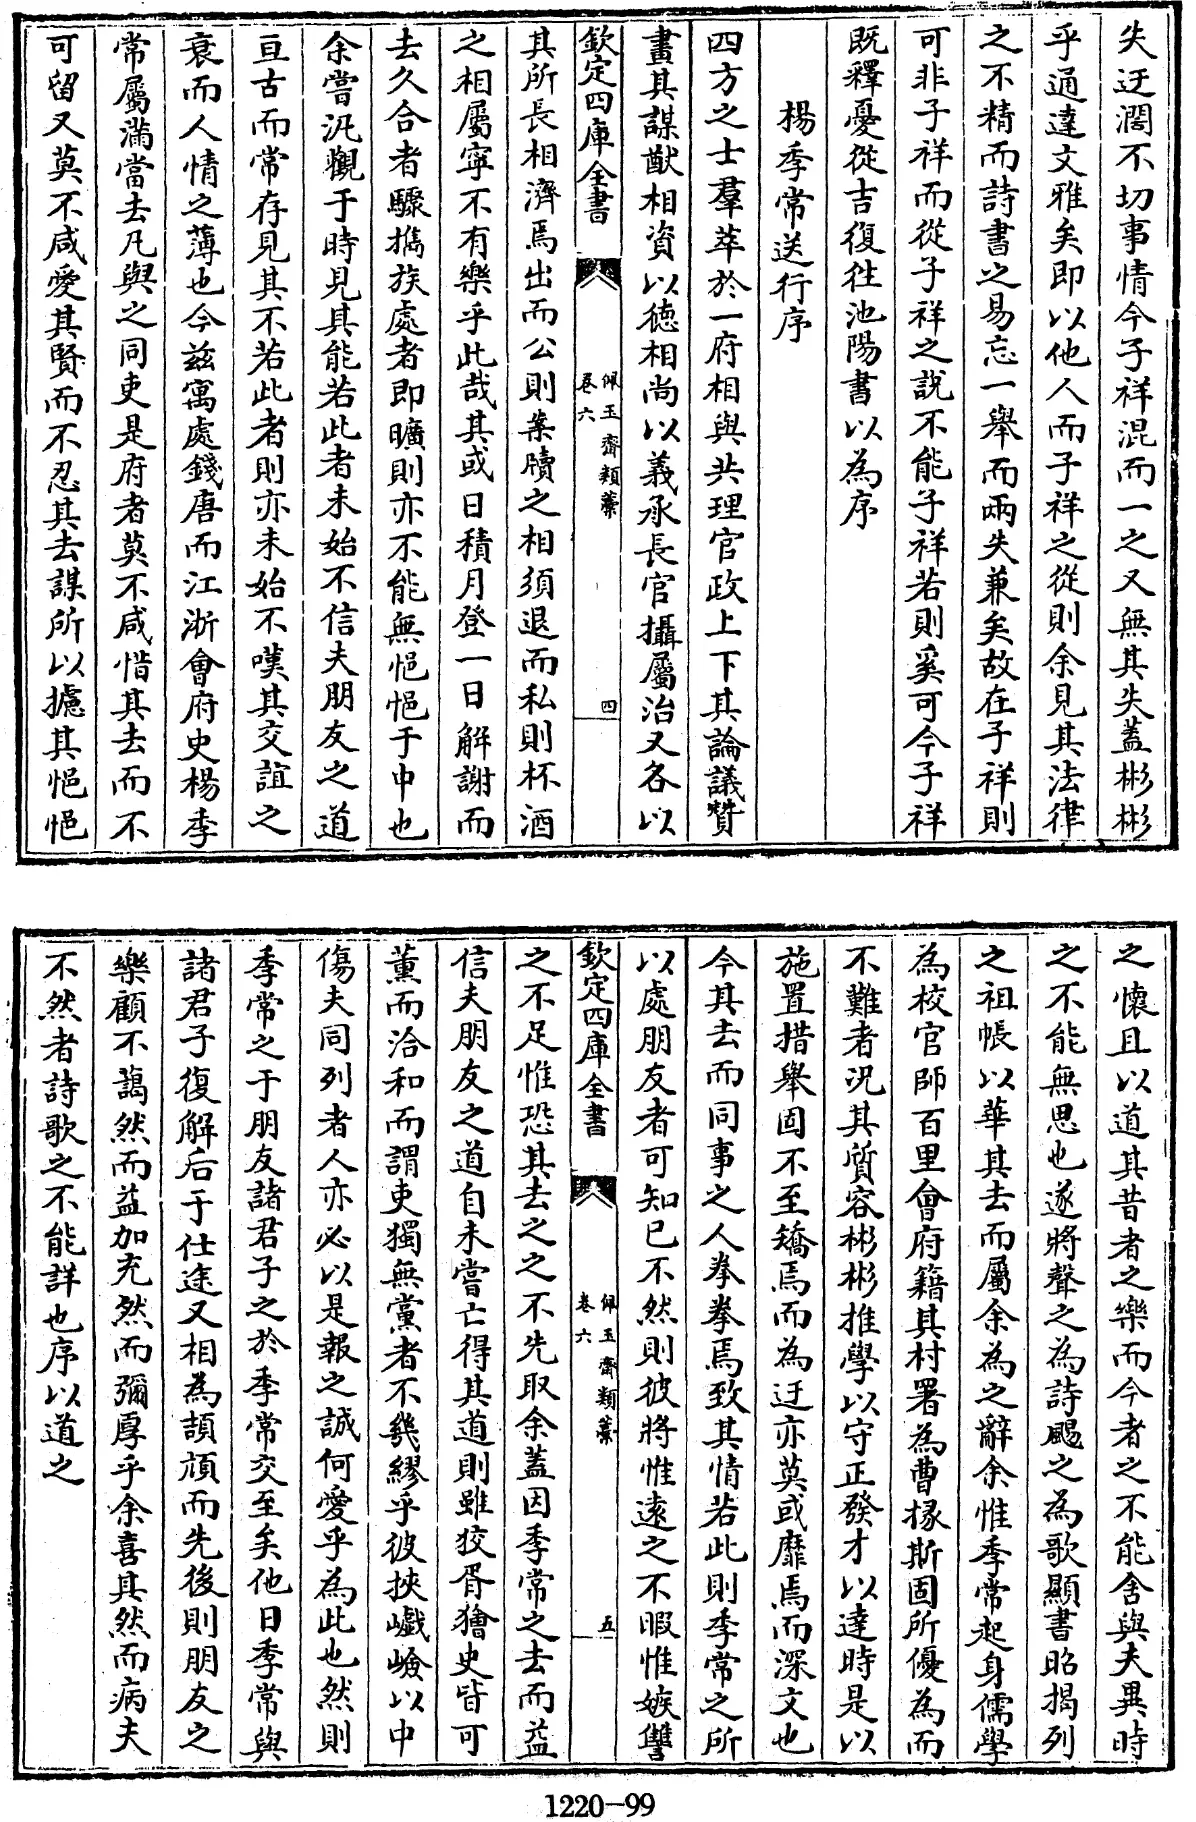 失迂濶不切事情今子祥混而一之又無其失蓋彬彬
乎通達文雅矣即以他人而子祥之從則余見其法律
之不精而詩書之易忘一舉而兩失兼矣故在子祥則
可非子祥而從子祥之說不能子祥若則奚可今子祥
既釋憂從吉復往池陽書以為序
楊季常送行序
四方之士羣萃於一府相與共理官政上下其論議贊
畫其謀猷相資以德相尚以義承長官攝屬治又各以
欽定四庫全書
佩玉齋類藁
卷六
四
其所長相濟焉出而公則案牘之相須退而私則杯酒
之相屬寧不有樂乎此哉其或日積月登一日解謝而
去久合者驟攜族處者即曠則亦不能無悒悒于中也
余嘗汎觀于時見其能若此者未始不信夫朋友之道
亘古而常存見其不若此者則亦未始不嘆其交誼之
衰而人情之薄也今兹寓處錢唐而江浙會府史楊季
常屬滿當去凡與之同吏是府者莫不咸惜其去而不
可留又莫不咸愛其賢而不忍其去謀所以攄其悒悒
之懷且以道其昔者之樂而今者之不能舍與夫異時
之不能無思也遂將聲之為詩颺之為歌顯書昭揭列
之祖帳以華其去而屬余為之辭余惟季常起身儒學
為校官師百里會府籍其村署為曹掾斯固所優為而
不難者況其質容彬彬推學以守正發才以達時是以
施置措舉固不至矯焉而為迂亦莫或靡焉而深文也
今其去而同事之人拳拳焉致其情若此則季常之所
以處朋友者可知已不然則彼將惟遠之不暇惟嫉讐
欽定四庫全書
佩玉齋類藁
卷六
五
之不足惟恐其去之之不先取余蓋因季常之去而益
信夫朋友之道自未嘗亡得其道則雖狡胥獪史皆可
薰而洽和而謂吏獨無黨者不幾繆乎彼挾巇嶮以中
傷夫同列者人亦必以是報之誠何愛乎為此也然則
季常之于朋友諸君子之於季常交至矣他日季常與
諸君子復解后于仕途又相為頡頏而先後則朋友之
樂顧不藹然而益加充然而彌厚乎余喜其然而病夫
不然者詩歌之不能詳也序以道之
1220-99